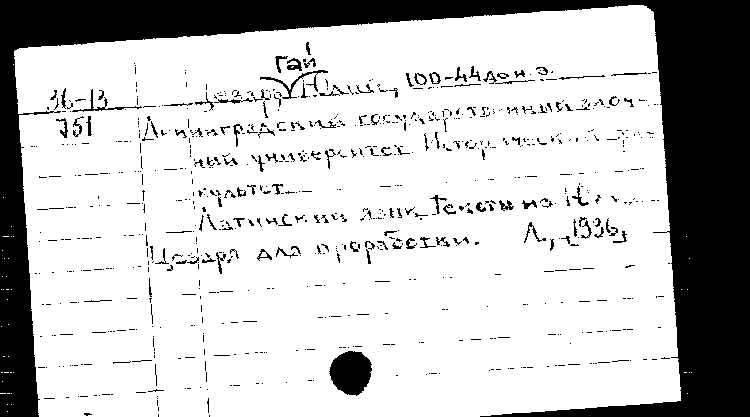 Гай
36-13 Цезарь, Юлий, 100-44 до н. э.
751 Ленинградский государственный заоч-
ный университет. Исторический фа-
культет
Латинский язык. Тексты из
Цезаря для проработки. Л., 1936,